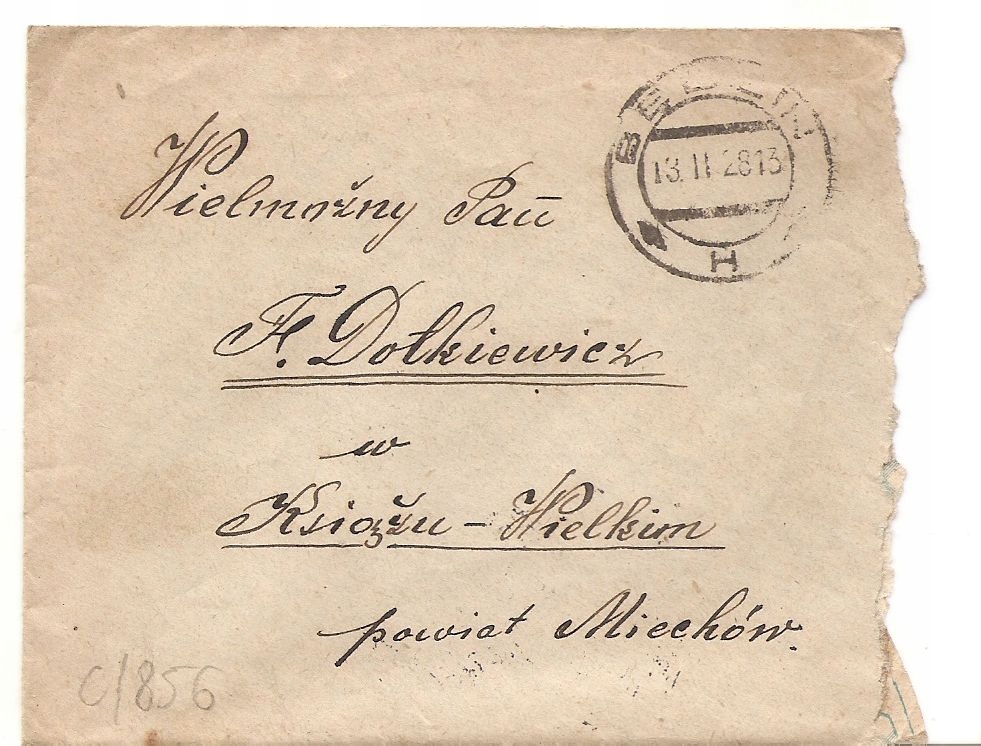 BĘDZIN
13. II 28 13
H
Wielmożny Pan
F. Dołkiewicz
w
Książu - Wielkim
powiat Miechów.
C/856